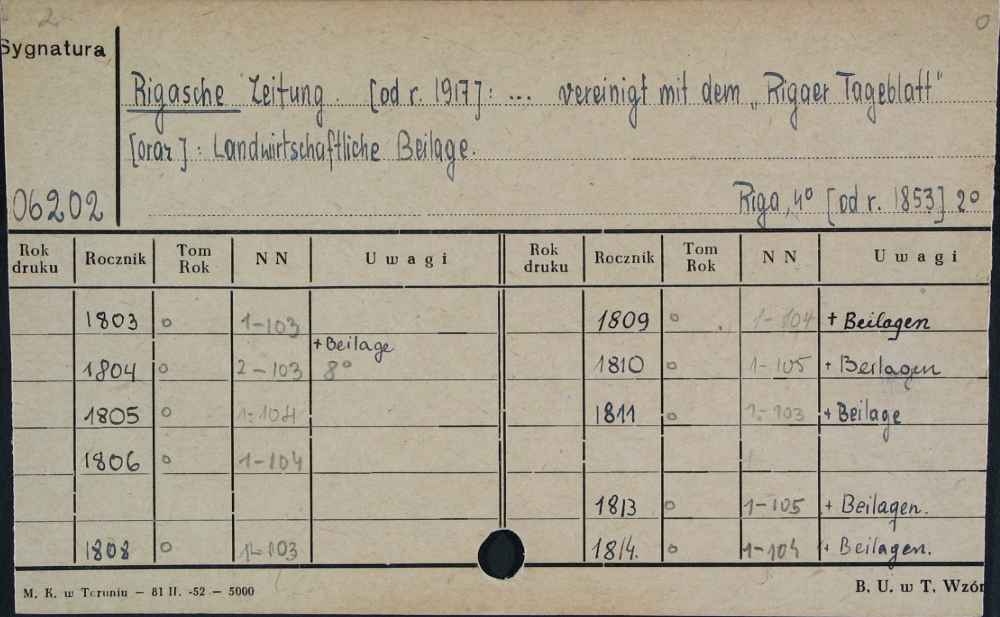 2
0
Sygnatura
Rigasche Zeitung. [od r. 1917]: ... vereinigt mit dem „Rigaer Tageblatt"
[oraz]: Landwirtschaftliche Beilage.
06202
Riga, 4° [od r. 1853] 2°
Rok druku Rocznik Tom Rok NN Uwagi Rok druku Rocznik Tom Rok NN Uwagi
1803 o 1-103 1809 o 1-104 + Beilagen
1804 o 2-103 + Beilage 8° 1810 o 1-105 + Beilagen
1805 o 1-104 1811 o 1-103 + Beilage
1806 o 1-104
1813 o 1-105 + Beilagen.
1808 o 1-103 1814. o 1-104 + Beilagen.
M. K. w Toruniu — 81 II. -52 — 5000 B. U. w T. Wzór